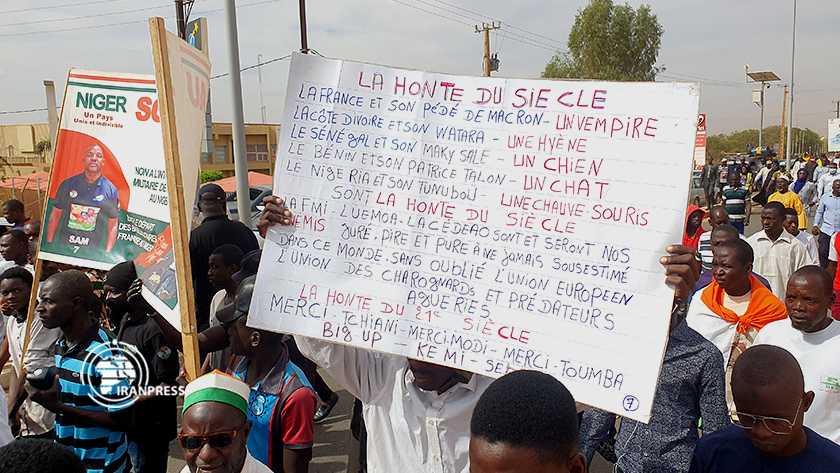 LA HONTE DU SIECLE
LA FRANCE ET SON PÉDÉ DE MACRON - UN VEMPIRE
LA CÔTE D'IVOIRE ET SON WATARA - UNE HYÈNE
LE SÉNÉGAL ET SON MAKY SALE - UN CHIEN
LE BÉNIN ET SON PATRICE TALON - UN CHAT
LE NIGERIA ET SON TUNUBOU - UNE CHAUVE SOURIS
SONT LA HONTE DU SIÈCLE
LA FMI L'UEMOA - LA CÉDEAO SONT ET SERONT NOS
ENEMIS JURÉ, PIRE ET PURE A NE JAMAIS SOUSESTIMÉ
DANS CE MONDE. SANS OUBLIÉ L'UNION EUROPEEN
L'UNION DES CHAROGNARDS ET PRÉDATEURS
AGUERIES
LA HONTE DU 21e SIÈCLE
MERCI - TCHIANI - MERCI - MODI - MERCI - TOUMBA
BIG-UP KEMI - SE
7
NIGER SO
Un Pays
Uni et Indivisible
NON A L'INT
MILITAIRE DE
AU NIG
DÉPART
DES
FRAN
SAM
7
IRANPRESS